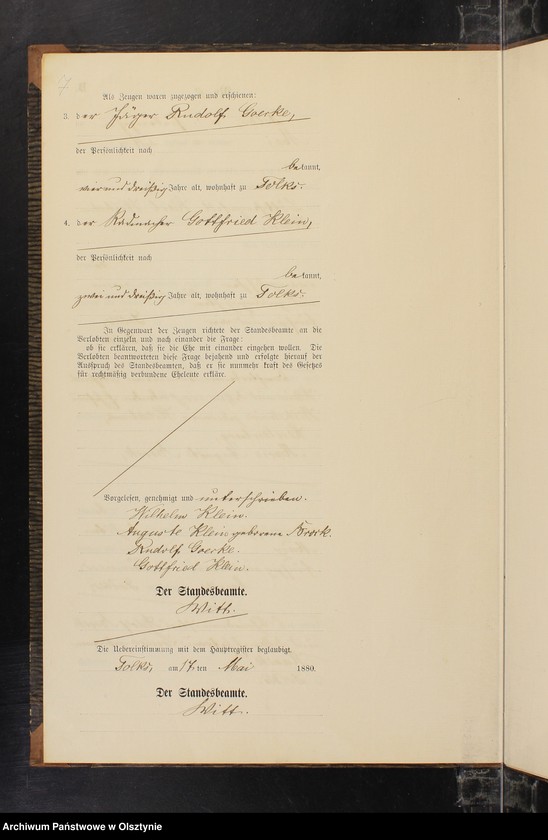 7
Als Zeugen waren zugezogen und erschienen:
3. der Jäger Rudolf Goerke,
der Persönlichkeit nach
bekannt,
vier und dreißig Jahre alt, wohnhaft zu Tolks.
4. der Radmacher Gottfried Klein,
der Persönlichkeit nach
bekannt,
zwei und dreißig Jahre alt, wohnhaft zu Tolks.
In Gegenwart der Zeugen richtete der Standesbeamte an die
Verlobten einzeln und nach einander die Frage:
ob sie erklären, daß sie die Ehe mit einander eingehen wollen. Die
Verlobten beantworteten diese Frage bejahend und erfolgte hierauf der
Ausspruch des Standesbeamten, daß er sie nunmehr kraft des Gesetzes
für rechtmäßig verbundene Eheleute erkläre.
Vorgelesen, genehmigt und unterschrieben.
Wilhelm Klein.
Auguste Klein geborene Brock.
Rudolf Goerke.
Gottfried Klein.
Der Standesbeamte.
Witt.
Die Uebereinstimmung mit dem Hauptregister beglaubigt.
Tolks, am 17ten Mai 1880.
Der Standesbeamte.
Witt.
Archiwum Państwowe w Olsztynie